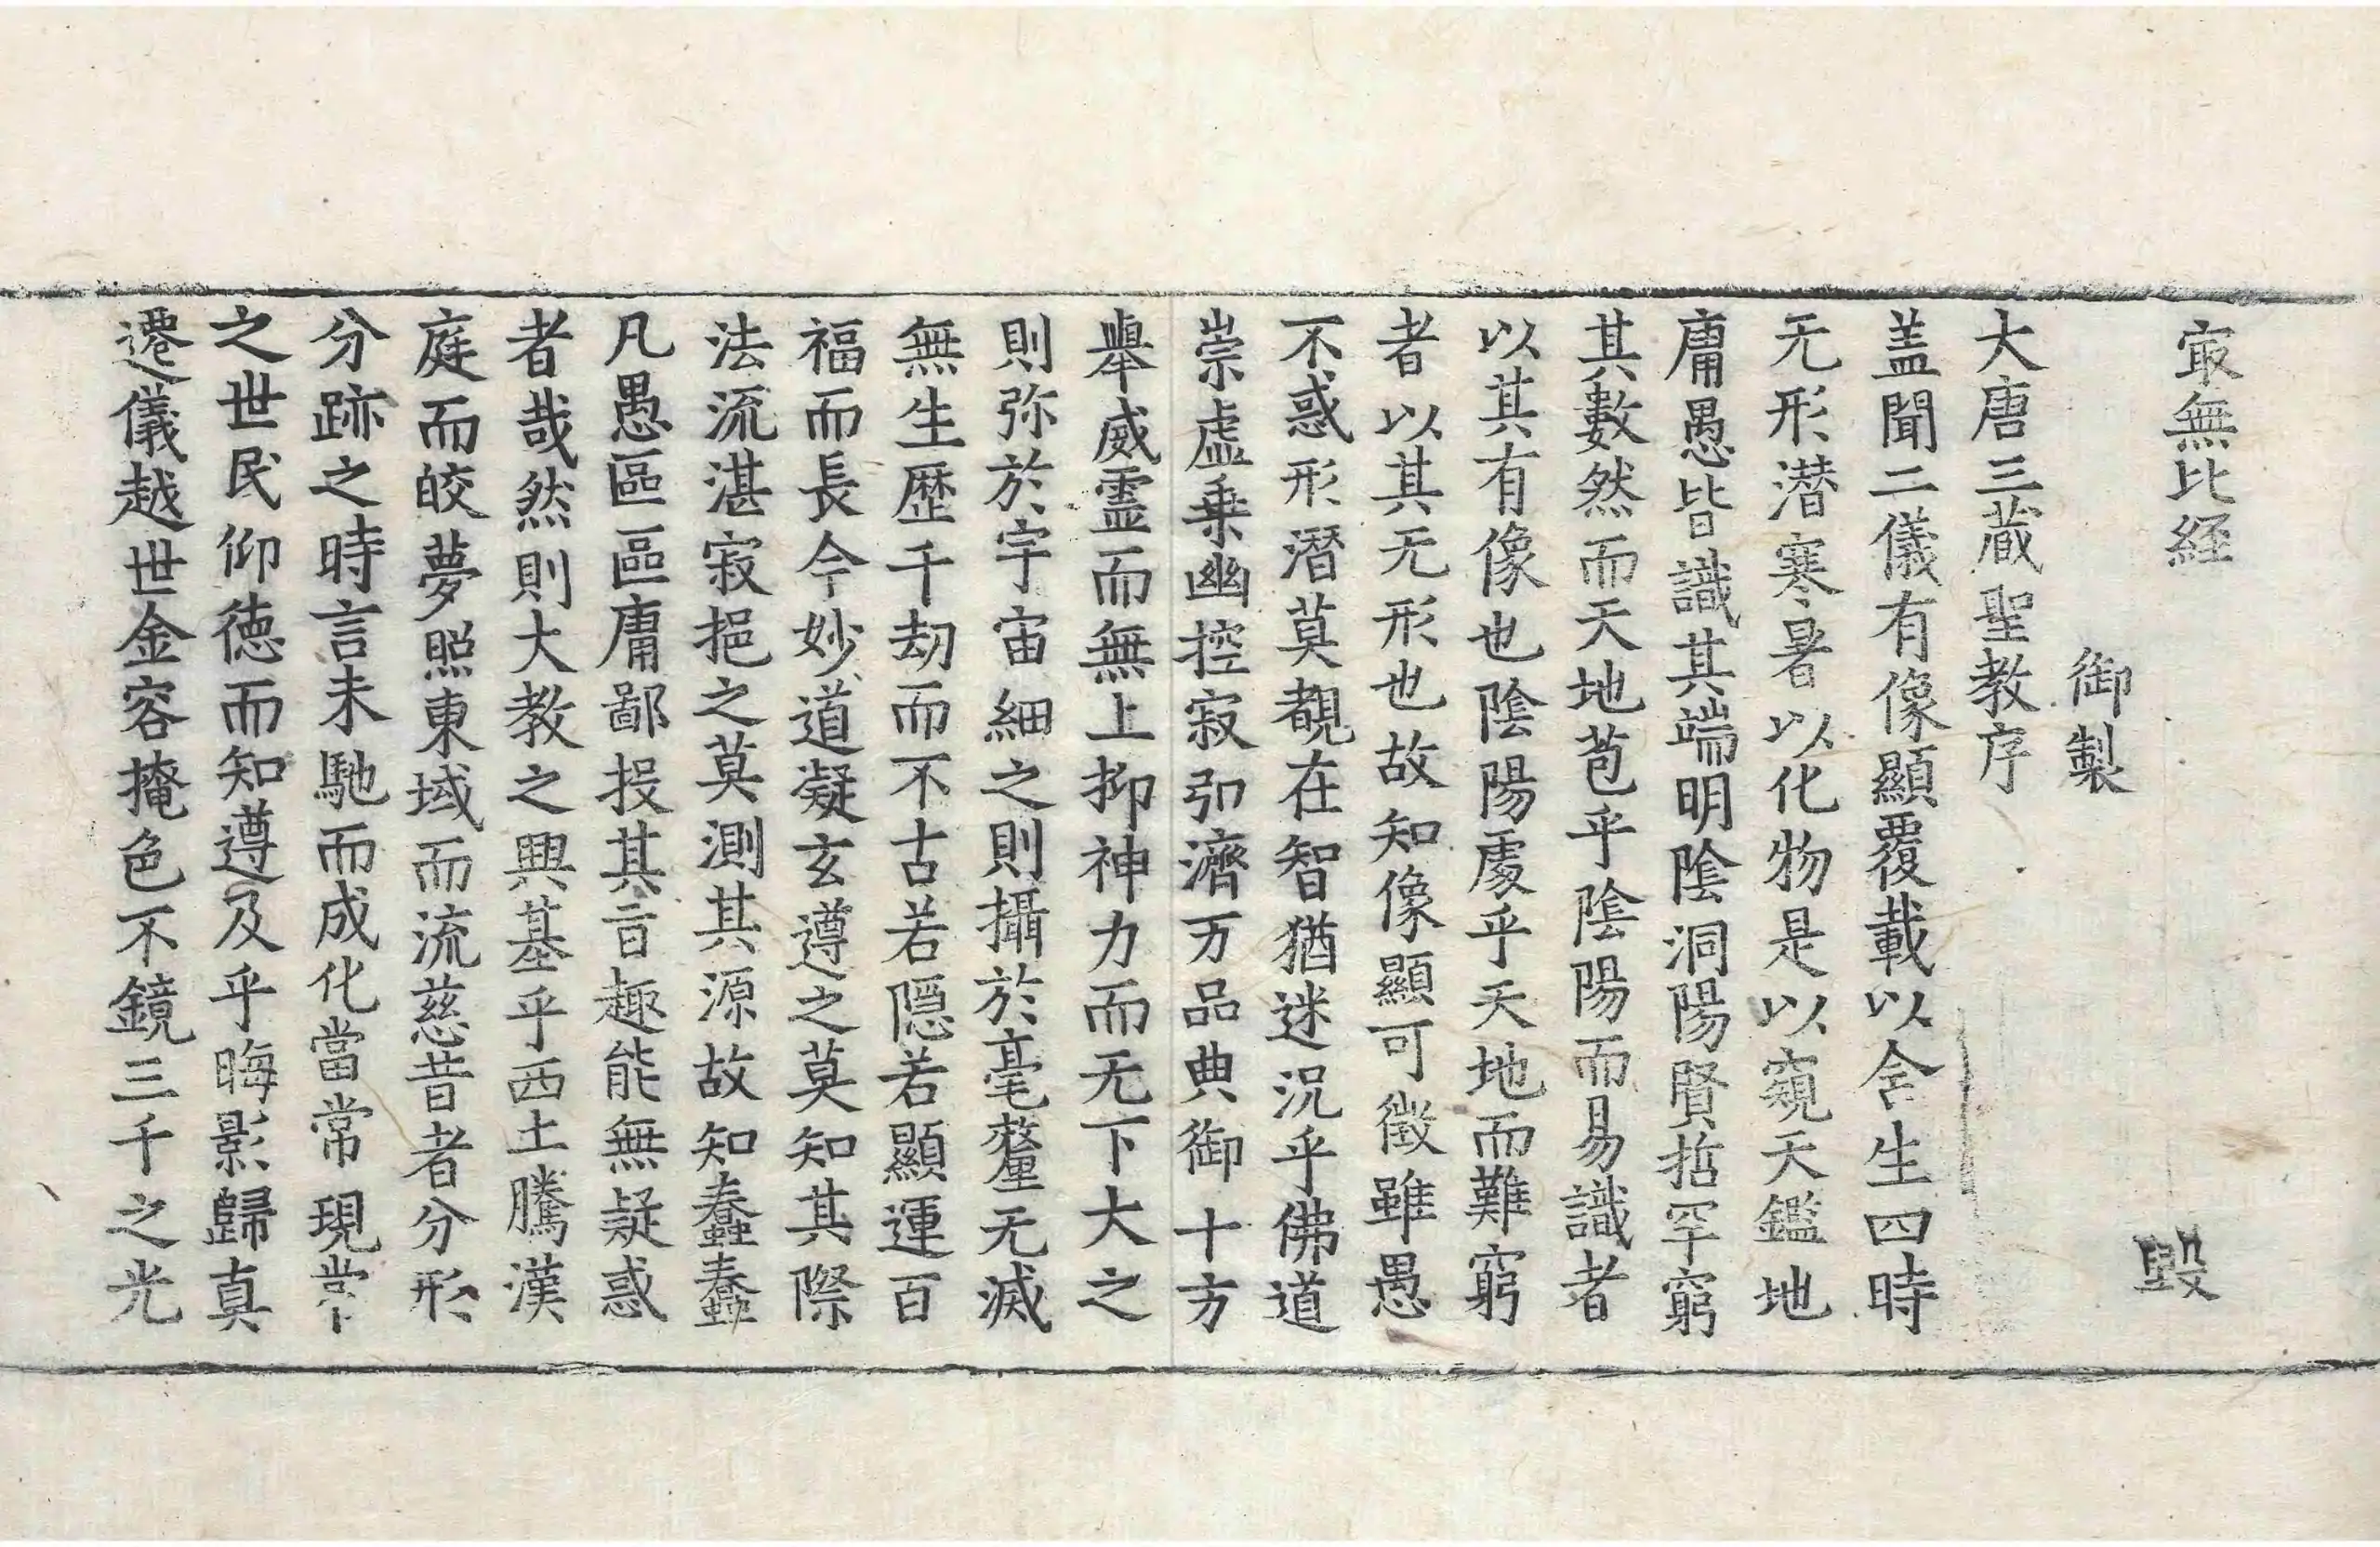 㝡無比経 毀
御製
大唐三蔵聖教序
盖聞二儀有像顯覆載以含生四時
无形潜寒暑以化物是以窺天鑑地
庸愚皆識其端明陰洞陽賢哲罕窮
其數然而天地苞乎陰陽而易識者
以其有像也陰陽處乎天地而難窮
者以其无形也故知像顯可徵雖愚
不惑形潜莫覩在智猶迷況乎佛道
崇虛乗幽控寂弘濟万品典御十方
舉威霊而無上抑神力而无下大之
則弥於宇宙細之則攝於毫釐无滅
無生歴千劫而不古若隠若顯運百
福而長今妙道凝玄遵之莫知其際
法流湛寂挹之莫測其源故知蠢蠢
凡愚區區庸鄙投其旨趣能無疑惑
者哉然則大教之興基乎西土騰漢
庭而皎夢照東域而流慈昔者分形
分跡之時言未馳而成化當常現常
之世民仰徳而知遵及乎晦影歸真
遷儀越世金容掩色不鏡三千之光